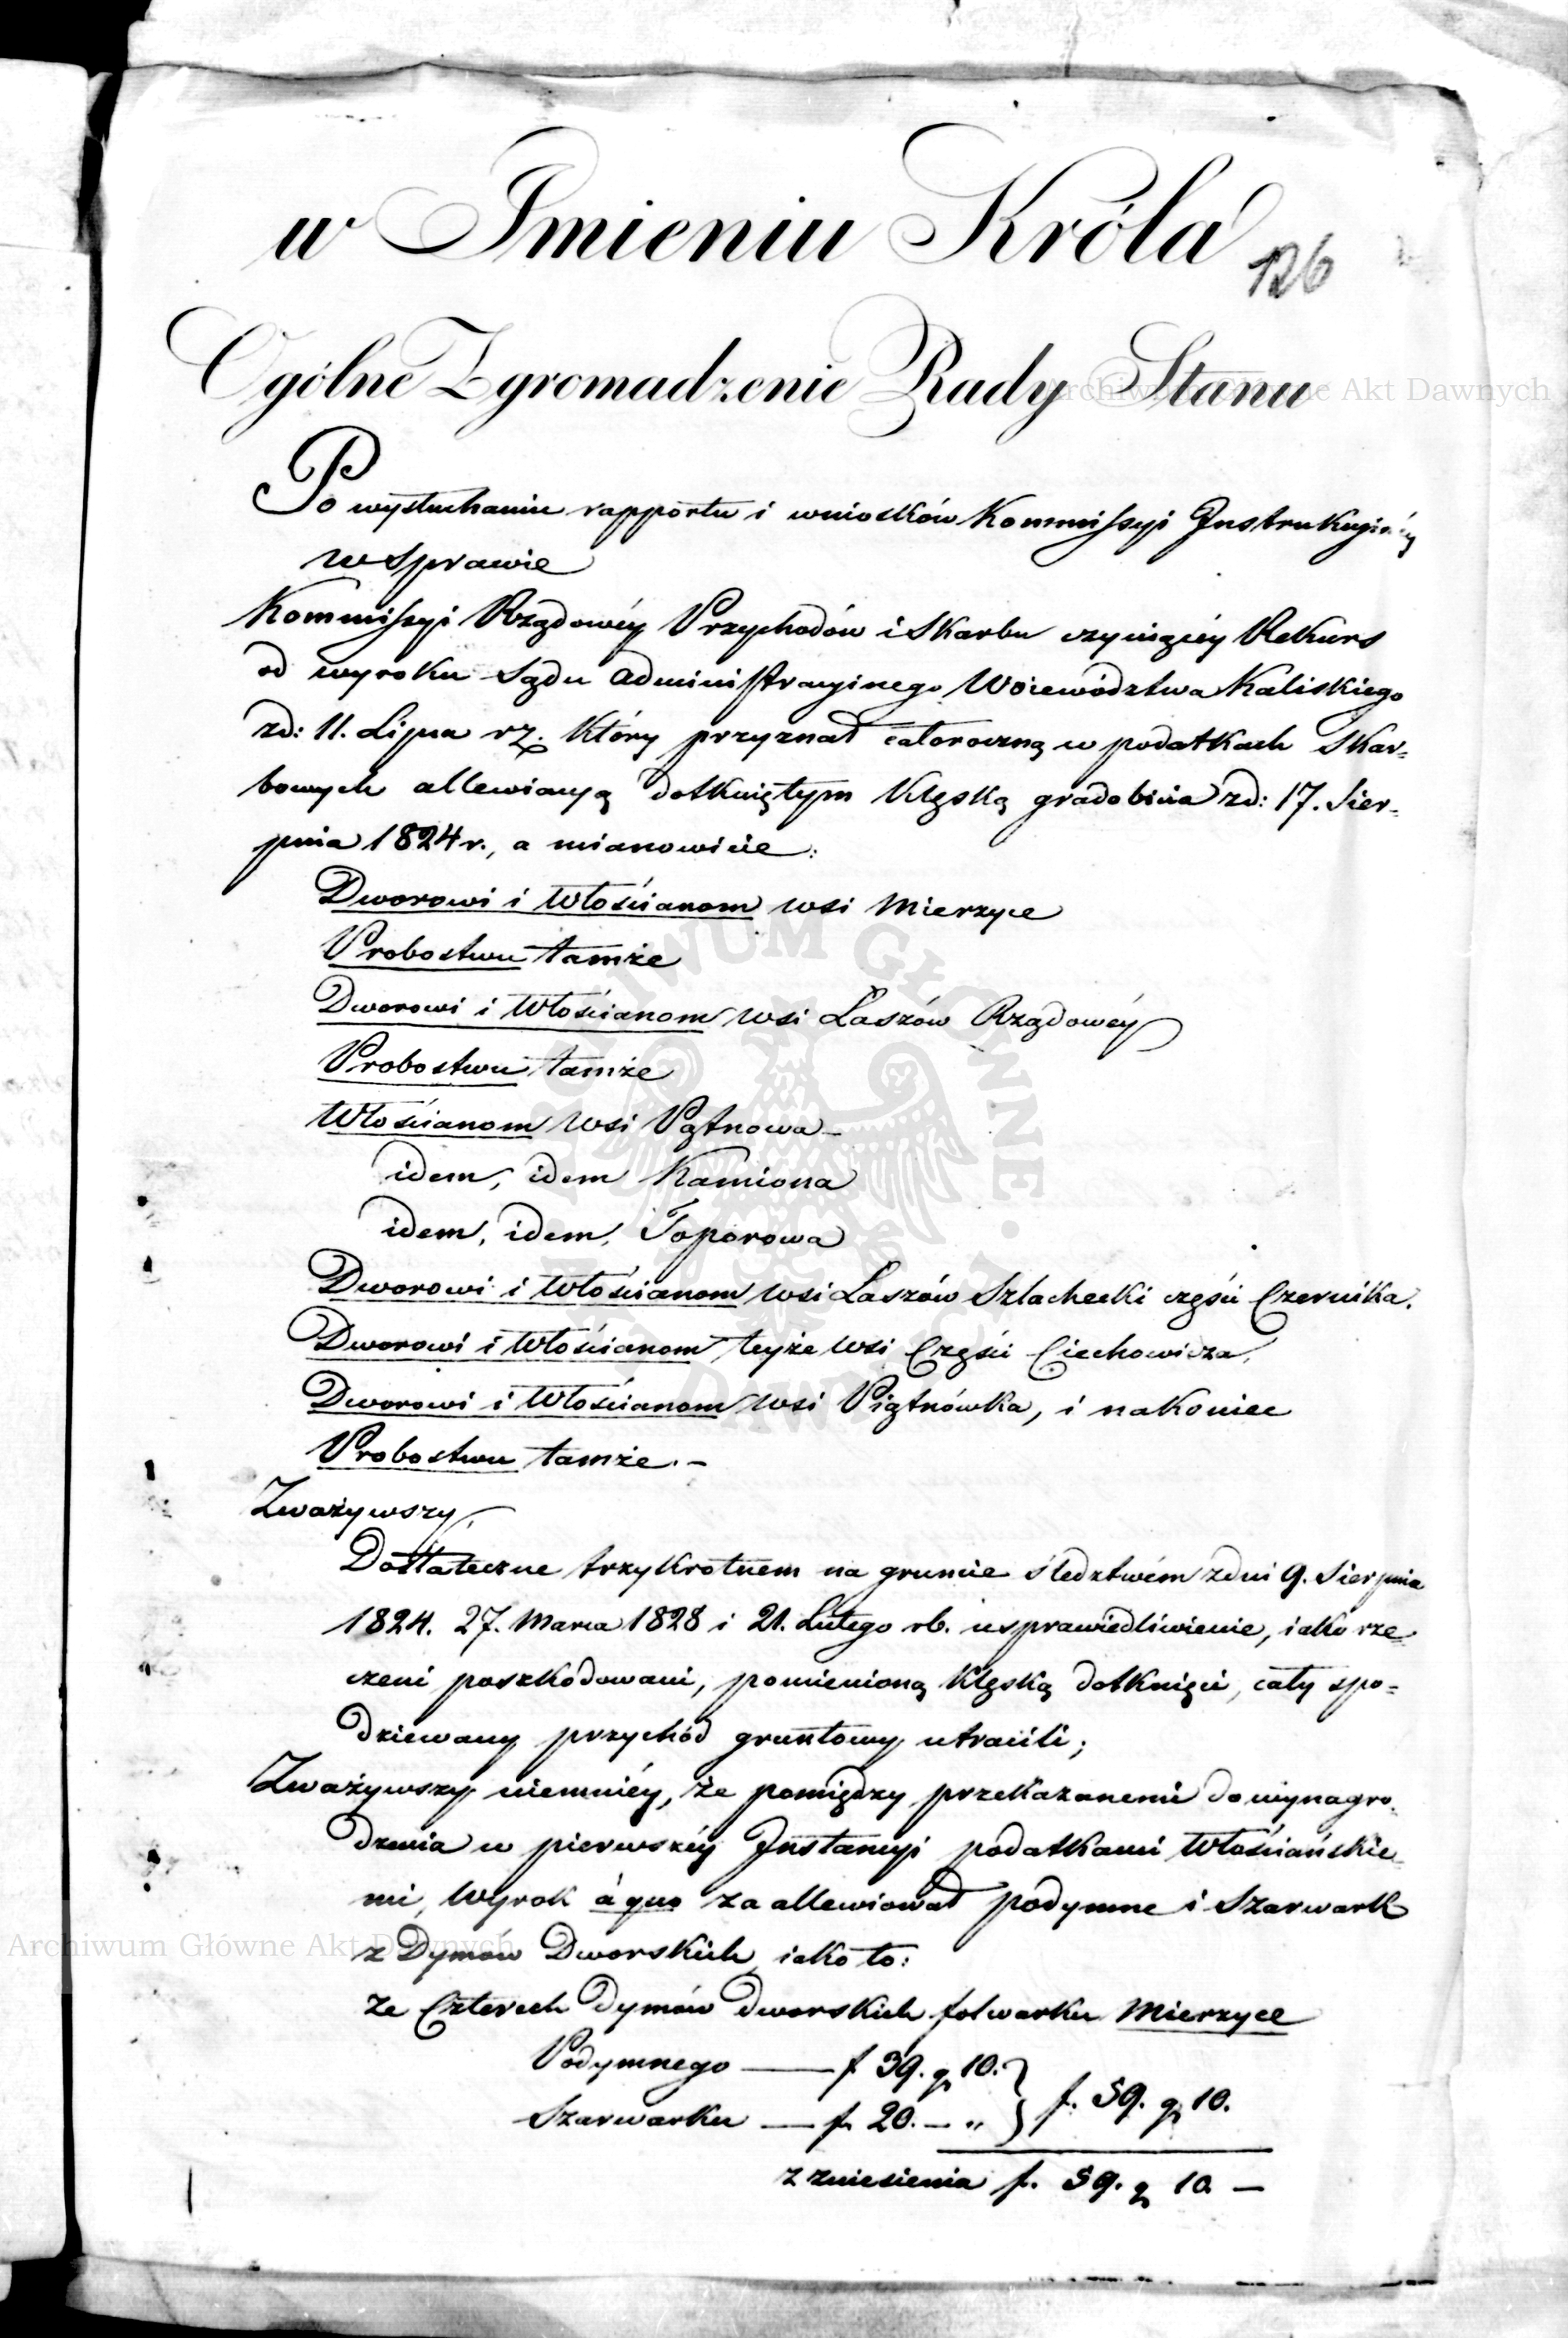 w Imieniu Króla
126
Ogólne Zgromadzenie Rady Stanu
Po wysłuchaniu rapportu i wniosków Kommissyi Instrukcyinéy
w sprawie
Kommissyi Rządowéy Przychodów i Skarbu czyniącéy Rekurs
od wyroku Sądu Administracyinego Woiewództwa Kaliskiego
zd: 11. Lipca rz. który przyznał całoroczną w podatkach Skar=
bowych allewiacyą dotkniętym klęską gradobicia zd: 17. Sier=
pnia 1824 r., a mianowicie:
Dworowi i Włościanom wsi Mierzyce
Probostwu tamże
Dworowi i Włościanom wsi Łaszów Rządowéy
Probostwu tamże
Włościanom wsi Pątnowa –
idem, idem Kamiona
idem, idem, Toporowa
Dworowi i Włościanom wsi Łaszów Szlachecki części Czernika.
Dworowi i Włościanom teyże wsi Części Ciechowicza,
Dworowi i Włościanom wsi Piątnówka, i nakoniec
Probostwu tamże. –
Zważywszy,
Dostateczne trzykrotnem na gruncie śledztwém z dni 9. Sierpnia
1824. 27. Marca 1828 i 21. Lutego rb. usprawiedliwienie, iako rze=
czeni poszkodowani, pomienioną klęską dotknięci, cały spo=
dziewany przychód gruntowy utracili;
Zważywszy niemniéy, że pomiędzy przekazanemi do wynagro=
dzenia w pierwszéy Instancyi podatkami Włościańskie=
mi, Wyrok à quo zaallewiował podymne i Szarwark
z Dymów Dworskich, iako to:
Ze Czterech dymów dworskich folwarku Mierzyce
Podymnego —— f 39. g 10. } f. 59. g 10.
Szarwarku —— f 20. – „
z zniesienia f. 59. g 10 —
Archiwum Główne Akt Dawnych
Archiwum Główne Akt Dawnych